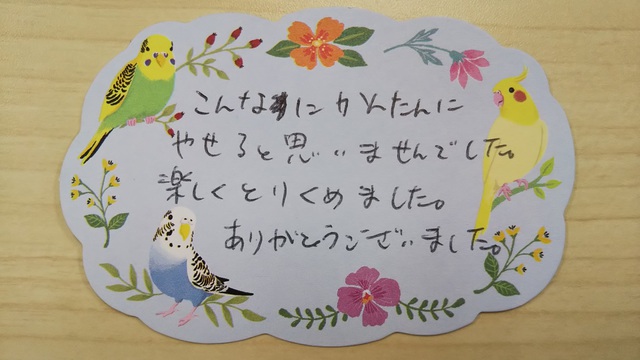 こんなにかんたんに
やせると思いませんでした。
楽しくとりくめました。
ありがとうございました。